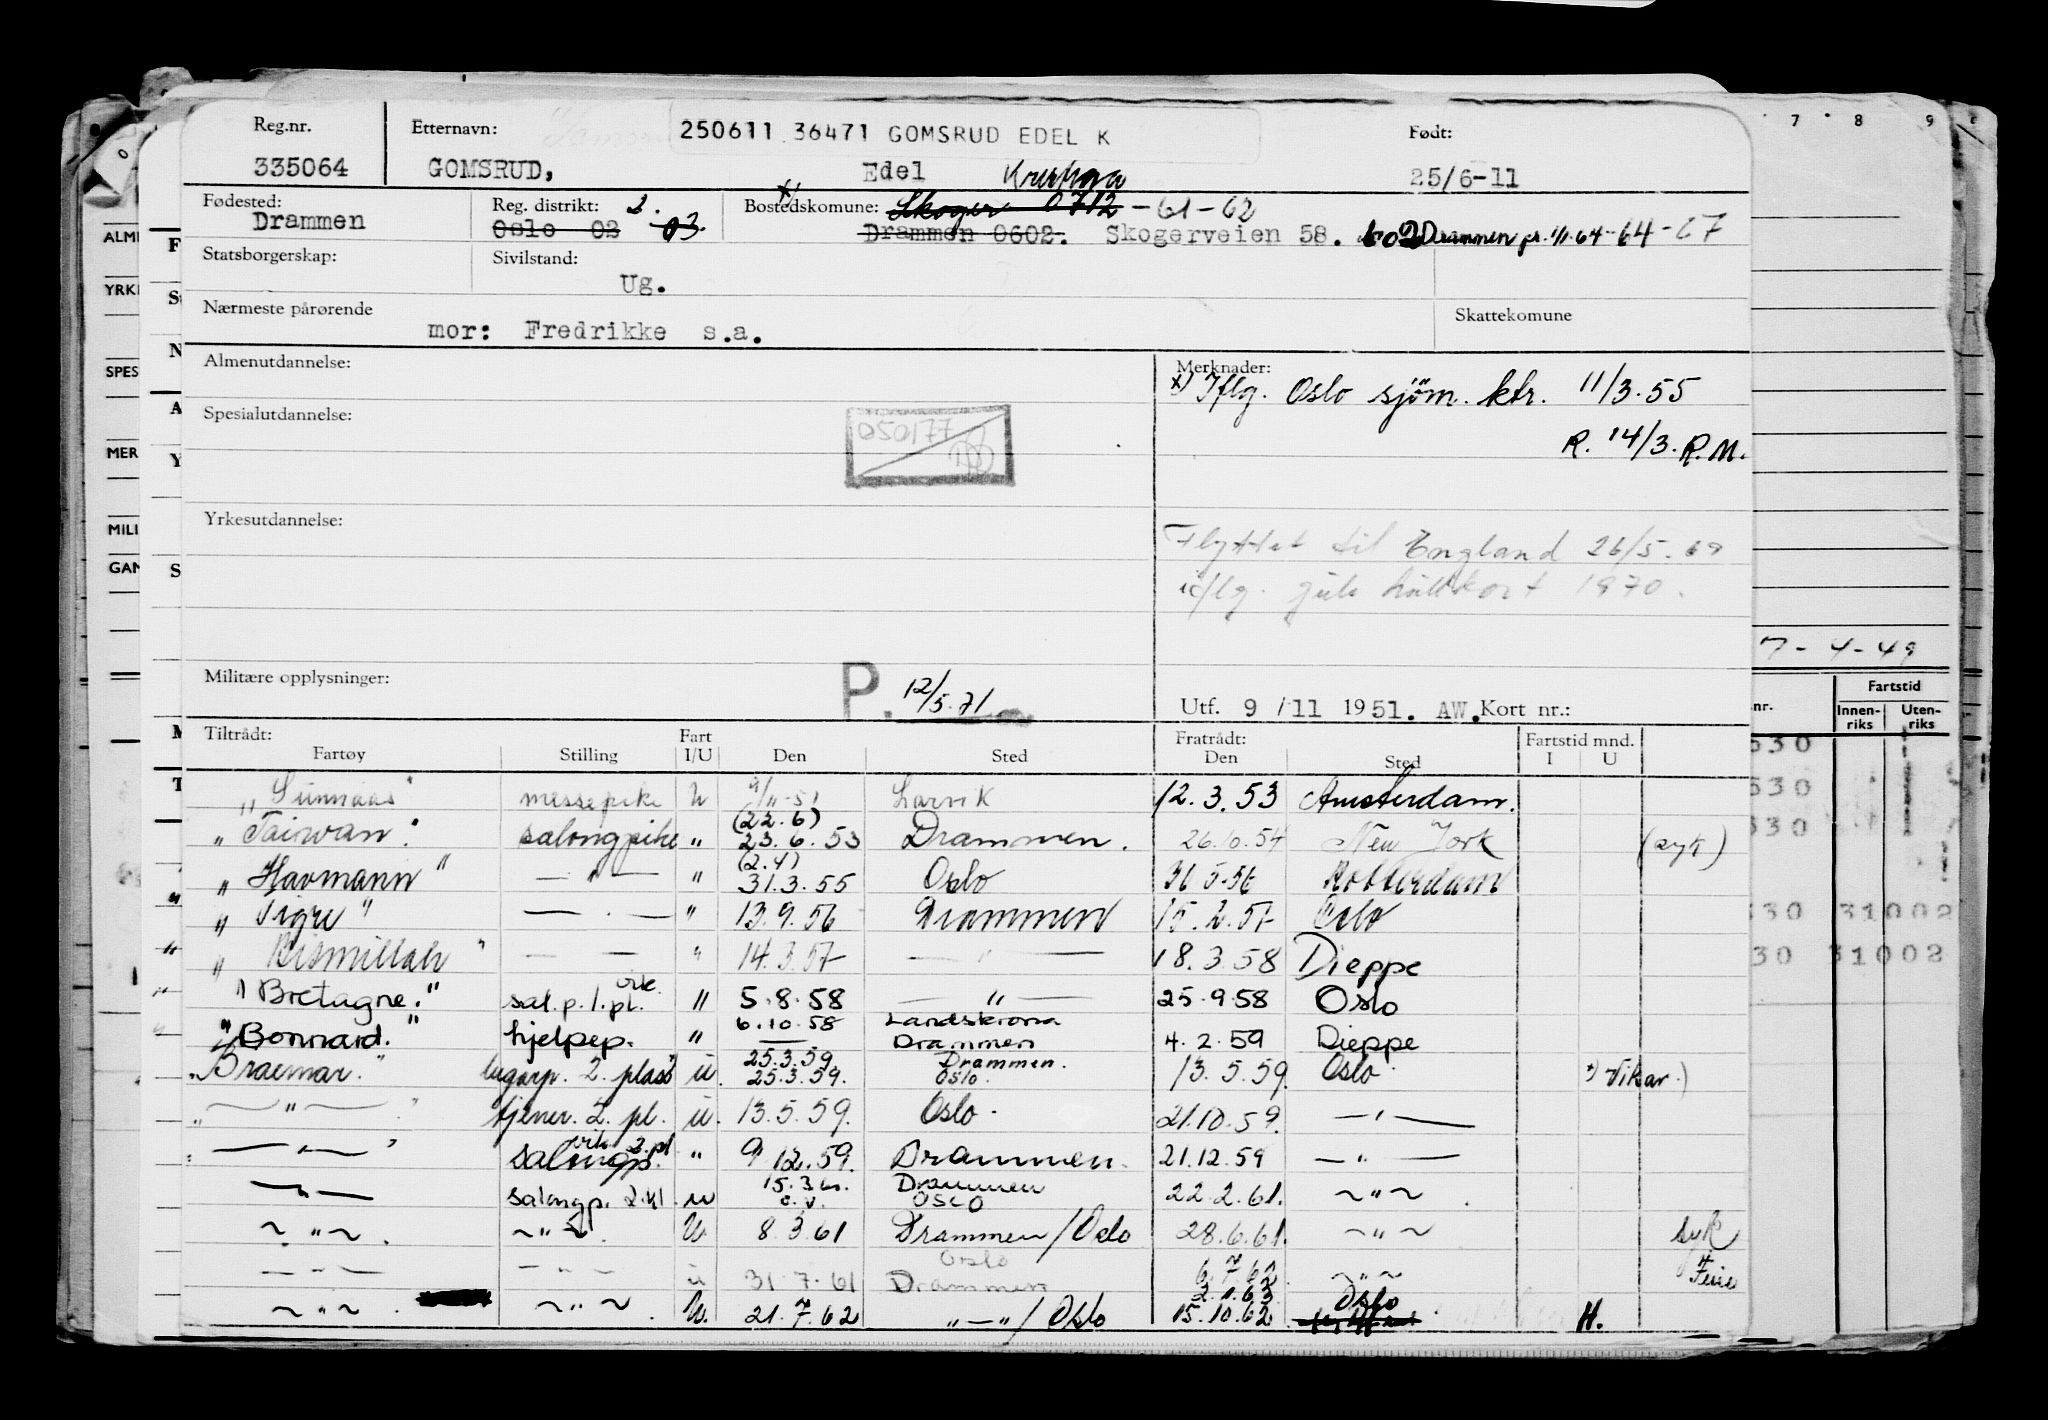 Reg.nr. Etternavn: 250611 36471 GOMSRUD EDEL K Født:
335064 GOMSRUD, Edel 25/6-11
Fødested: Reg. distrikt: 2. Bostedskomune: Skoger 0712 - 61 - 62
Drammen Oslo 02 03 Drammen 0602. Skogerveien 58. 602 Drammen pr. 1/1-64 - 64 - 67
Statsborgerskap: Sivilstand:
Ug.
Nærmeste pårørende Skattekomune
mor: Fredrikke s.a.
Almenutdannelse: Merknader:
x) Iflg. Oslo sjöm. ktr. 11/3.55
Spesialutdannelse: 050177
R. 14/3. R.M.
Yrkesutdannelse:
Flyttet til England 26/5.69
iflg. gule hullkort 1970.
Militære opplysninger: P. 12/5.71
Utf. 9 / 11 1951. AW. Kort nr.:
Tiltrådt: Fart Fratrådt: Fartstid mnd.
Fartøy Stilling I/U Den Sted Den Sted I U
„Sunnaas" messepike U 9/11-51 Larvik 12.3.53 Amsterdam.
(22.6)
„Taiwan". salongpike " 23.6.53 Drammen. 26.10.54 New York (syk)
(2.4)
„Havmann" — " — " 31.3.55 Oslo 31 5.56 Rotterdam
„Tigre" — . — " 13.9.56 Drammen 15.2.57 Oslo
„Bismillah" — — " 14.3.57 — " — 18.3.58 Dieppe
vik.
"Bretagne." sal.p.1.pl. " 5.8.58 — " — 25.9.58 Oslo
6.10.58 Landskrona
"Bonnard." hjelpep. " — Drammen 4.2.59 Dieppe
25.3.59 Drammen.
„Braemar." lugarp. 2. plass u. 25.3.59. Oslo. 13.5.59. Oslo. *) Vikar.)
— " — tjener. 2. pl. u. 13.5.59. Oslo. 21.10.59. — " —
vik. 2.pl
— " — salongp. " 9 12.59. Drammen. 21.12.59 — " —
15.3.60. Drammen
— " — salongp. 2.kl. u c.v. OSLO 22.2.61. ~ " ~
~ " ~ . ~ " ~ U. 8.3.61 Drammen/Oslo 28.6.61. ~ " ~ syk
Oslo
— " — — " — u 31.7.61 Drammen 6.7.62 ~ " ~ Ferie
2.1.63 Oslo
~ " ~ . ~ " ~ U. 21.7.62 " — " / Oslo 15.10.62 H.
7 8 9
ALM
YRK
SPES
MER
MILI
GAN
7 - 4 - 49
nr. Fartstid
Innen- Uten-
riks riks
530
530
530
530 31002
530 31002